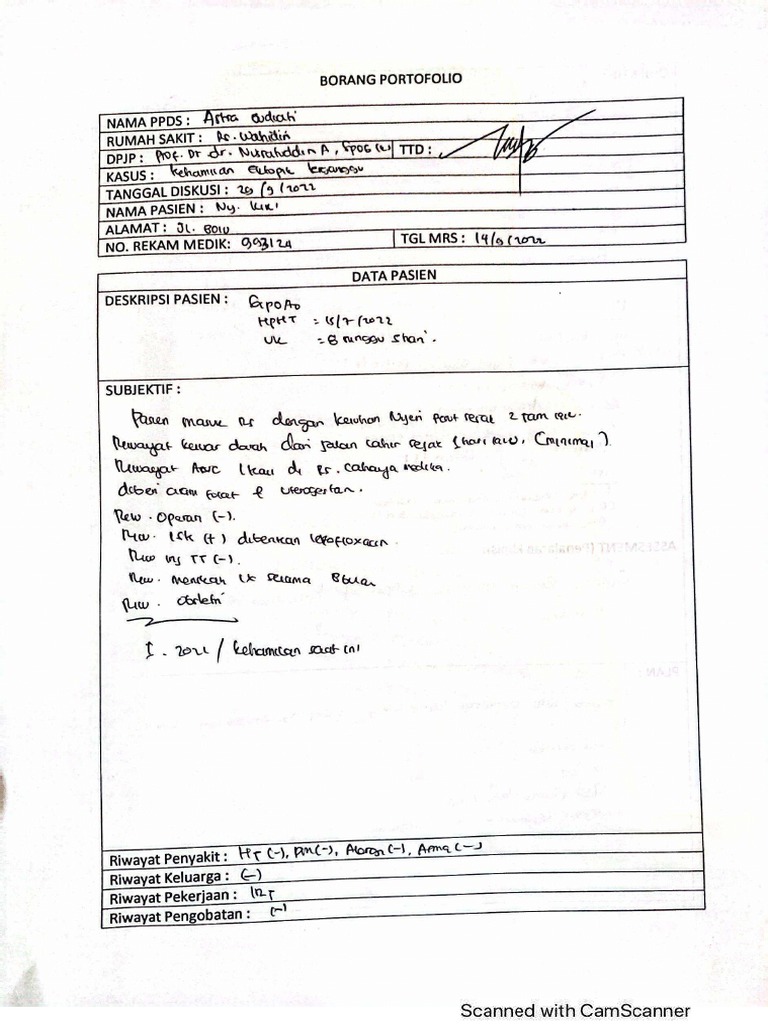 BORANG PORTOFOLIO
NAMA PPDS : Astra
RUMAH SAKIT : Rs. Wahidin
DPJP : Prof. Dr dr. Nusratuddin A, SpOG (K) TTD :
KASUS : Kehamilan Ektopik terganggu
TANGGAL DISKUSI : 20/9/2022
NAMA PASIEN : Ny. Kiki
ALAMAT : Jl.
NO. REKAM MEDIK: 993124 TGL MRS : 14/9/2022
DATA PASIEN
DESKRIPSI PASIEN : G1P0A0
HPHT = 15/7/2022
UK = 8 minggu 5 hari.
SUBJEKTIF :
Pasien masuk Rs dengan keluhan Nyeri perut sejak 2 jam lalu.
Riwayat keluar darah dari jalan lahir sejak 1 hari lalu, (minimal).
Riwayat ANC 1 kali di Rs. Cahaya Medika.
diberi asam folat & utrogestan.
Riw. Operasi (-).
Riw. ISK (+) diberikan levofloxacin.
Riw inj TT (-).
Riw. menikah 1x selama 8 bulan
Riw. Obstetri
I. 2022 / kehamilan saat ini
Riwayat Penyakit : HT (-), DM (-), Alergi (-), Asma (-)
Riwayat Keluarga : (-)
Riwayat Pekerjaan : IRT
Riwayat Pengobatan : (-)
ASSESMENT
PLAN
Scanned with CamScanner